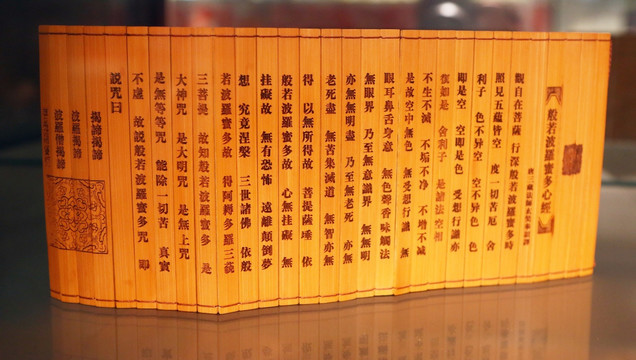 般若波羅蜜多心經
唐三藏法師玄奘奉詔譯
觀自在菩薩 行深般若波羅蜜多時
照見五蘊皆空 度一切苦厄 舍
利子 色不异空 空不异色 色
即是空 空即是色 受想行識 亦
復如是 舍利子 是諸法空相
不生不滅 不垢不净 不增不減
是故空中無色 無受想行識 無
眼耳鼻舌身意 無色聲香味觸法
無眼界 乃至無意識界 無無明
亦無無明盡 乃至無老死 亦無
老死盡 無苦集滅道 無智亦無
得 以無所得故 菩提薩埵 依
般若波羅蜜多故 心無挂礙 無
挂礙故 無有恐怖 遠離顛倒夢
想 究竟涅槃 三世諸佛 依般
若波羅蜜多故 得阿耨多羅三藐
三菩提 故知般若波羅蜜多 是
大神咒 是大明咒 是無上咒
是無等等咒 能除一切苦 真實
不虛 故説般若波羅蜜多咒 即
説咒曰
揭諦揭諦
波羅揭諦
波羅僧揭諦